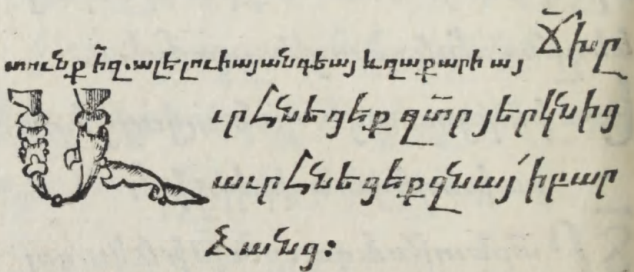 Ճխը
տունք ի՟զ. ալելուիայ անգեայ և զաքարի այ
Աւրհնեցեք զտ՟ր յերկնից
աւրհնեցեք զնայ՛ ի բար
ձանց։